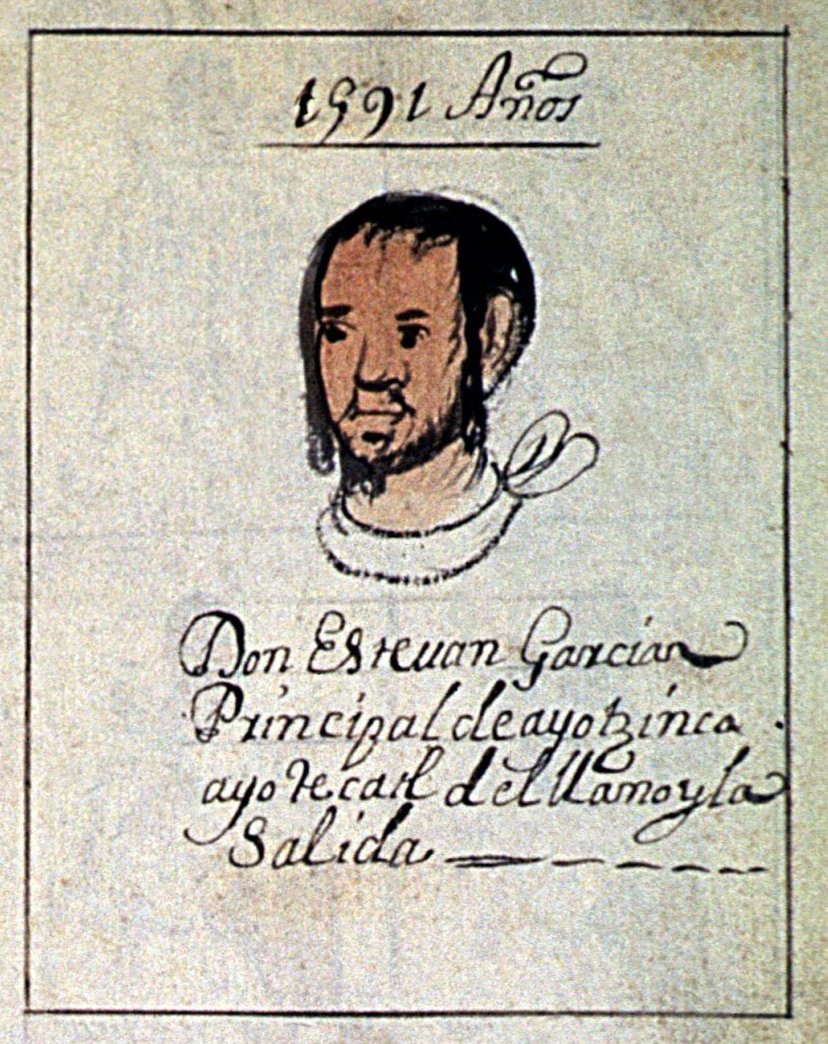 1591 Años
Don Esteuan Garcia
Principal de ayotzinca
ayotecatl del llamo y la
Salida